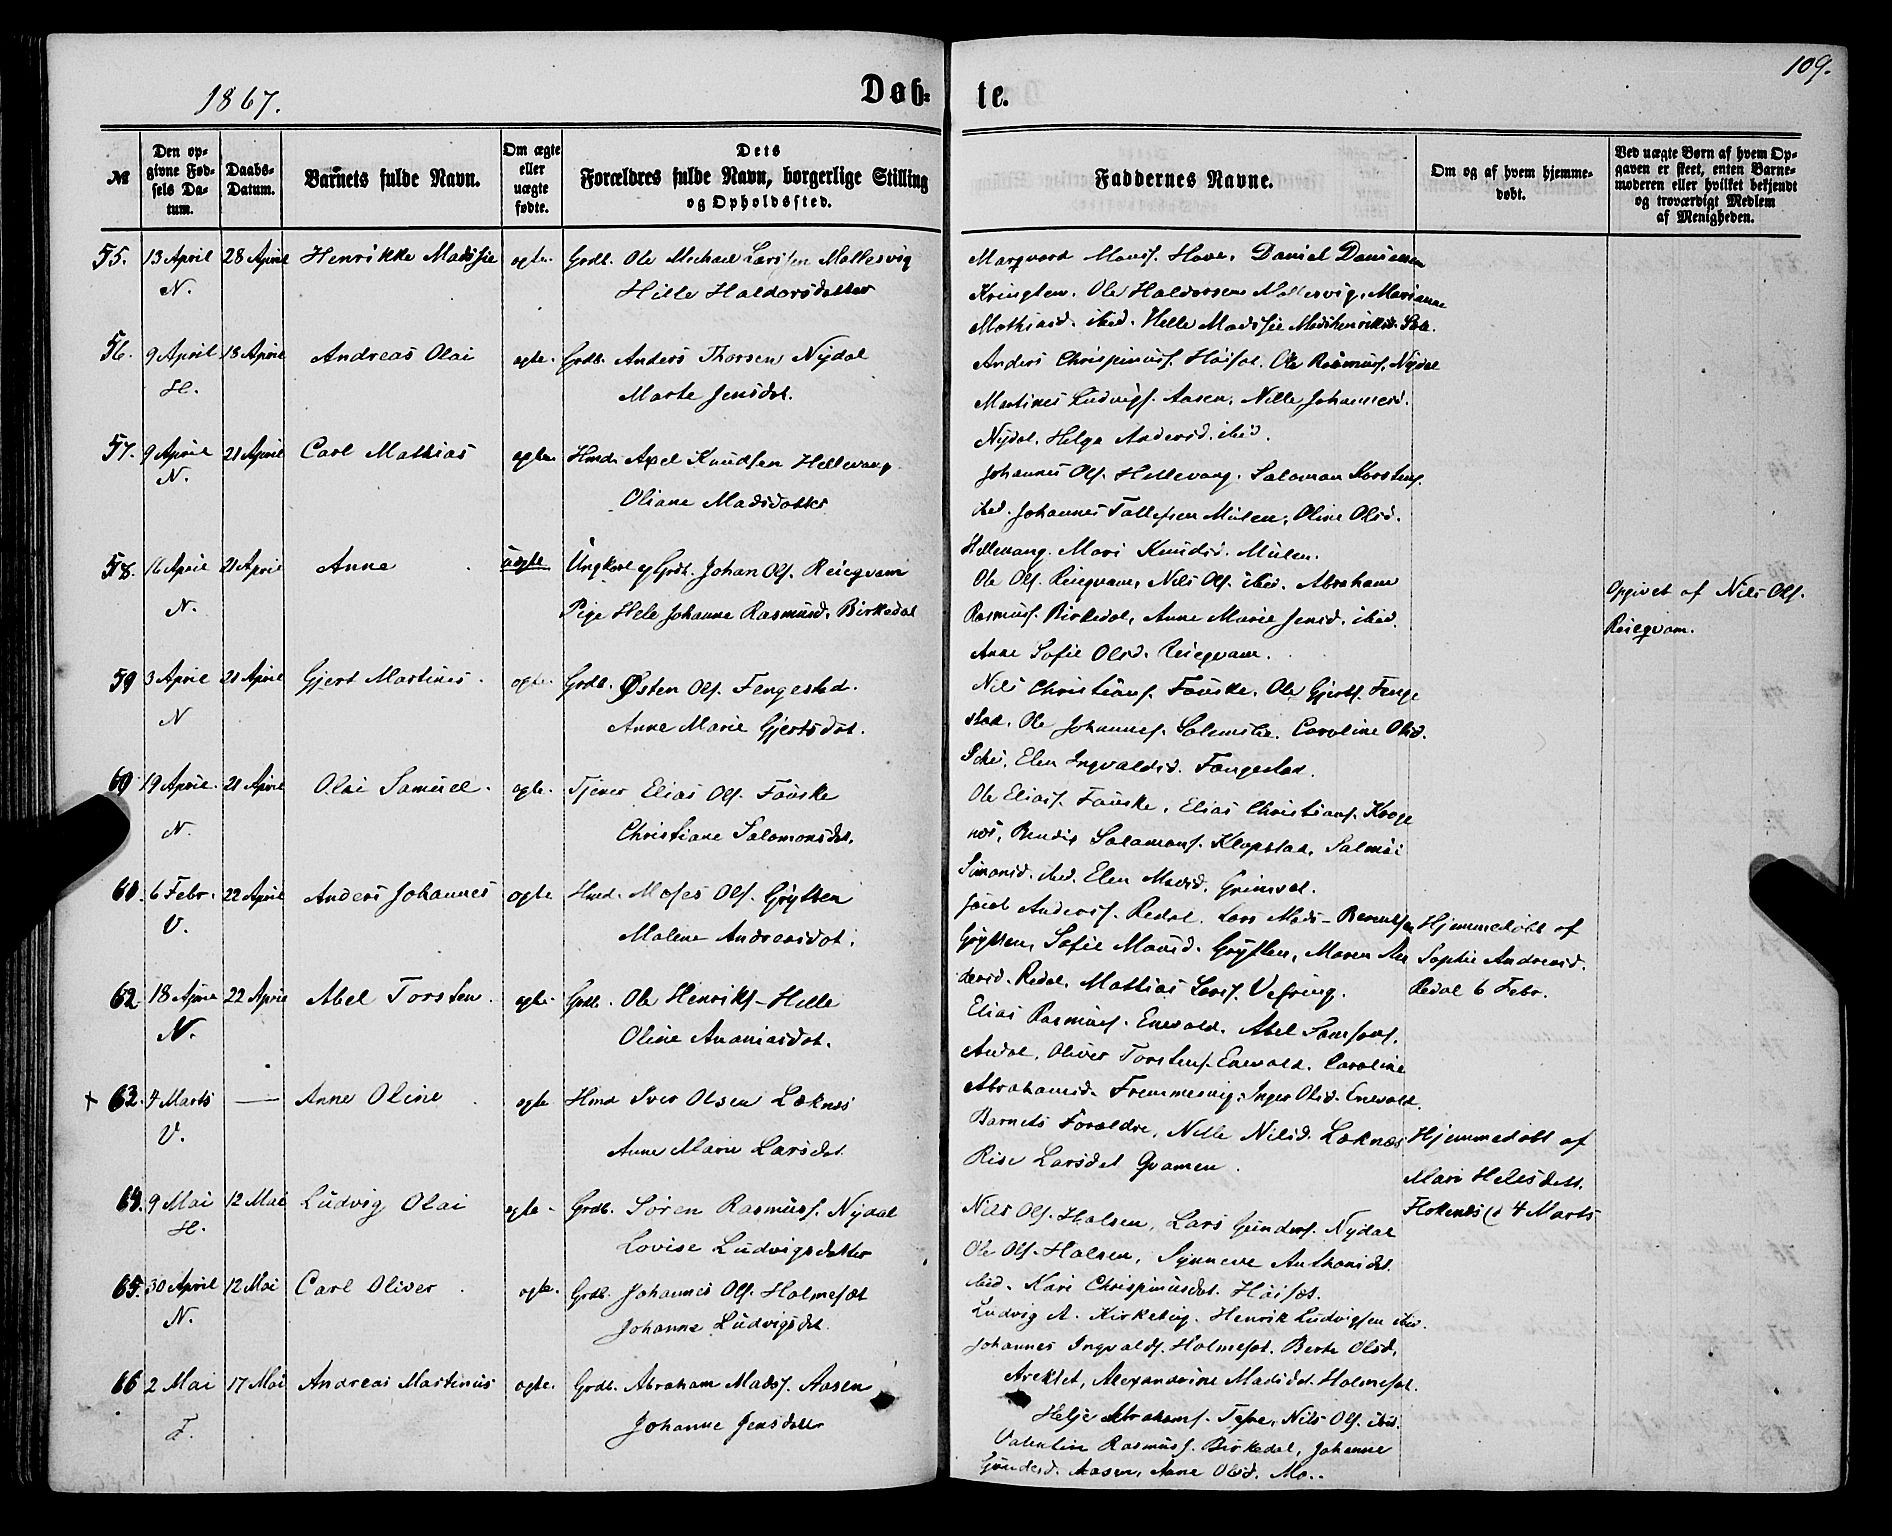 109.
1867.
Døb- te.
№
Den op-
givne Fød-
sels Da-
tum.
Daabs-
Datum.
Barnets fulde Navn.
Om ægte
eller
uægte
fødte.
Dets
Forældres fulde Navn, borgerlige Stilling
og Opholdssted.
Faddernes Navne.
Om og af hvem hjemme-
døbt.
Ved uægte Børn af hvem Op-
gaven er skeet, enten Barne-
moderen eller hvilket bekjendt
og troværdigt Medlem
af Menigheden.
55. 13 April 28 April Henrikke Madssie ægte. Grdb. Ole Michael Larssen Mollesvig
N. Hille Haldorsdatter
Marqvard Monss. Hove, Daniel Danielsen
Kringlen. Ole Haldorsen Mollesvig, Marianne
Mathiasd. ibid. Helle Madssie
56. 9 April 18 April Andreas Olai ægte. Grdb. Anders Thorsen Nydal
H. Marte Jensdat.
Anders Chrispinuss. Høisæt. Ole Rasmuss. Nydal
Martines Ludvigs. Aasen, Nille Johannesd.
Nydal. Helga Andersd. ibid.
57. 9 April 21 April Carl Mathias ægte. Hmd. Axel Knudsen Hellevang
N. Oliane Madsdatter
Johannes Ols. Hellevang. Salomon Torstens.
ibid. Johannes Tollefsen Mulen, Oline Olsd.
Hellevang. Mari Knudsd. Mulen.
58. 16 April 21 April Anne uægte Ungkarl og Grdb. Johan Ols. Reieqvam
N. Pige Hele Johanne Rasmusd. Birkedal
Ole Ols. Reieqvam, Nils Ols. ibid. Abraham
Rasmuss. Birkedal, Anne Marie Jensd. ibid.
Anne Sofie Olsd. Reieqvam.
Opgivet af Nils Ols.
Reieqvam.
59 3 April 21 April Gjert Martines. ægte. Grdb. Østen Ols. Fengestad.
N Anne Marie Gjertsdat.
Nils Christians. Fauske. Ole Gjerts. Fenge
stad. Ole Johannes. Solemslie. Caroline Olsd.
Schei, Elen Ingvaldsd. Fengestad.
60 19 April. 21 April Olai Samuel. ægte. Tjener Elias Ols. Fauske
N. Christiane Salomonsdat.
Ole Eliass. Fauske, Elias Christians. Kroge
næs, Bendix Salamons. Klopstad, Salmoi
Simonsd. ibid. Elen Madsd. Grimset.
61. 6 Febr. 22 April Anders Johannes ægte Hmd. Moses Ols. Grytten
V. Malene Andreasdat.
Jacob Anderss. Redal. Lars Mads-
Grytten, Sofie Monsd. Grytten, Maren An
dersd. Redal. Mathias Lars. Vefring.
Hjemmedøbt af
Sophie Andreasd.
Redal 6 Febr.
62 18 April 22 April Abel Torsten. ægte Grdb. Ole Henriks-Helle
N. Oline Ananiasdat.
Elias Rasmuss. Enevold. Abel Samsons.
Ardal, Oliver Torstens. Enevold. Caroline
Abrahamsd. Fremmesvig, Inger Olsd. Enevold.
+ 63. 4 Marts — Anne Oline ægte Hmd Iver Olsen Leknæs
V. Anne Marie Larsdat
Barnets Forældre, Nille Nilsd. Leknæs
Rise Larsdat Qvamen.
Hjemmedøbt af
Mari Helesdatt.
Flokenes d. 4 Marts
64. 9 Mai 12 Mai Ludvig Olai ægte. Grdb. Søren Rasmuss. Nydal
H. Lovise Ludvigsdatter
Nils Ols. Halsen, Lars Gunders. Nydal
Ole Ols. Halsen, Synneve Anthonidat.
ibid. Kari Chrispinusdat. Høisæt.
65. 30 April 12 Mai Carl Oliver ægte. Grdb. Johannes Ols. Holmesæt
N. Johanne Ludvigsdat
Ludvig A. Kirkebøg. Henrik Ludvigsen ibid.
Johannes Ingvalds. Holmesæt. Berte Olsd.
Areklet, Alexandrine Madsdat. Holmesæt.
66 2 Mai 17 Mai Andreas Martinus ægte. Grdb. Abraham Madss. Aasen
F. Johanne Jensdatter
Helje Abrahams. Tefre, Nils Ols. ibid.
Valentin Rasmuss. Birkedal, Johanne
Gundersd. Aasen, Anne Olsd. Mo..